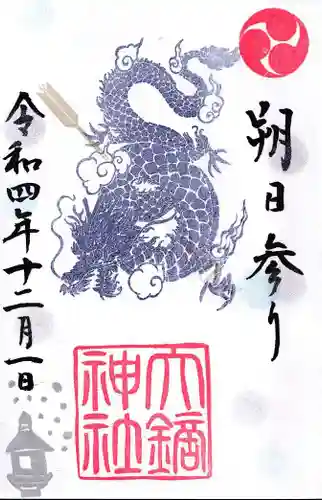 朔日参り
大鏑
神社
令和四年十二月一日